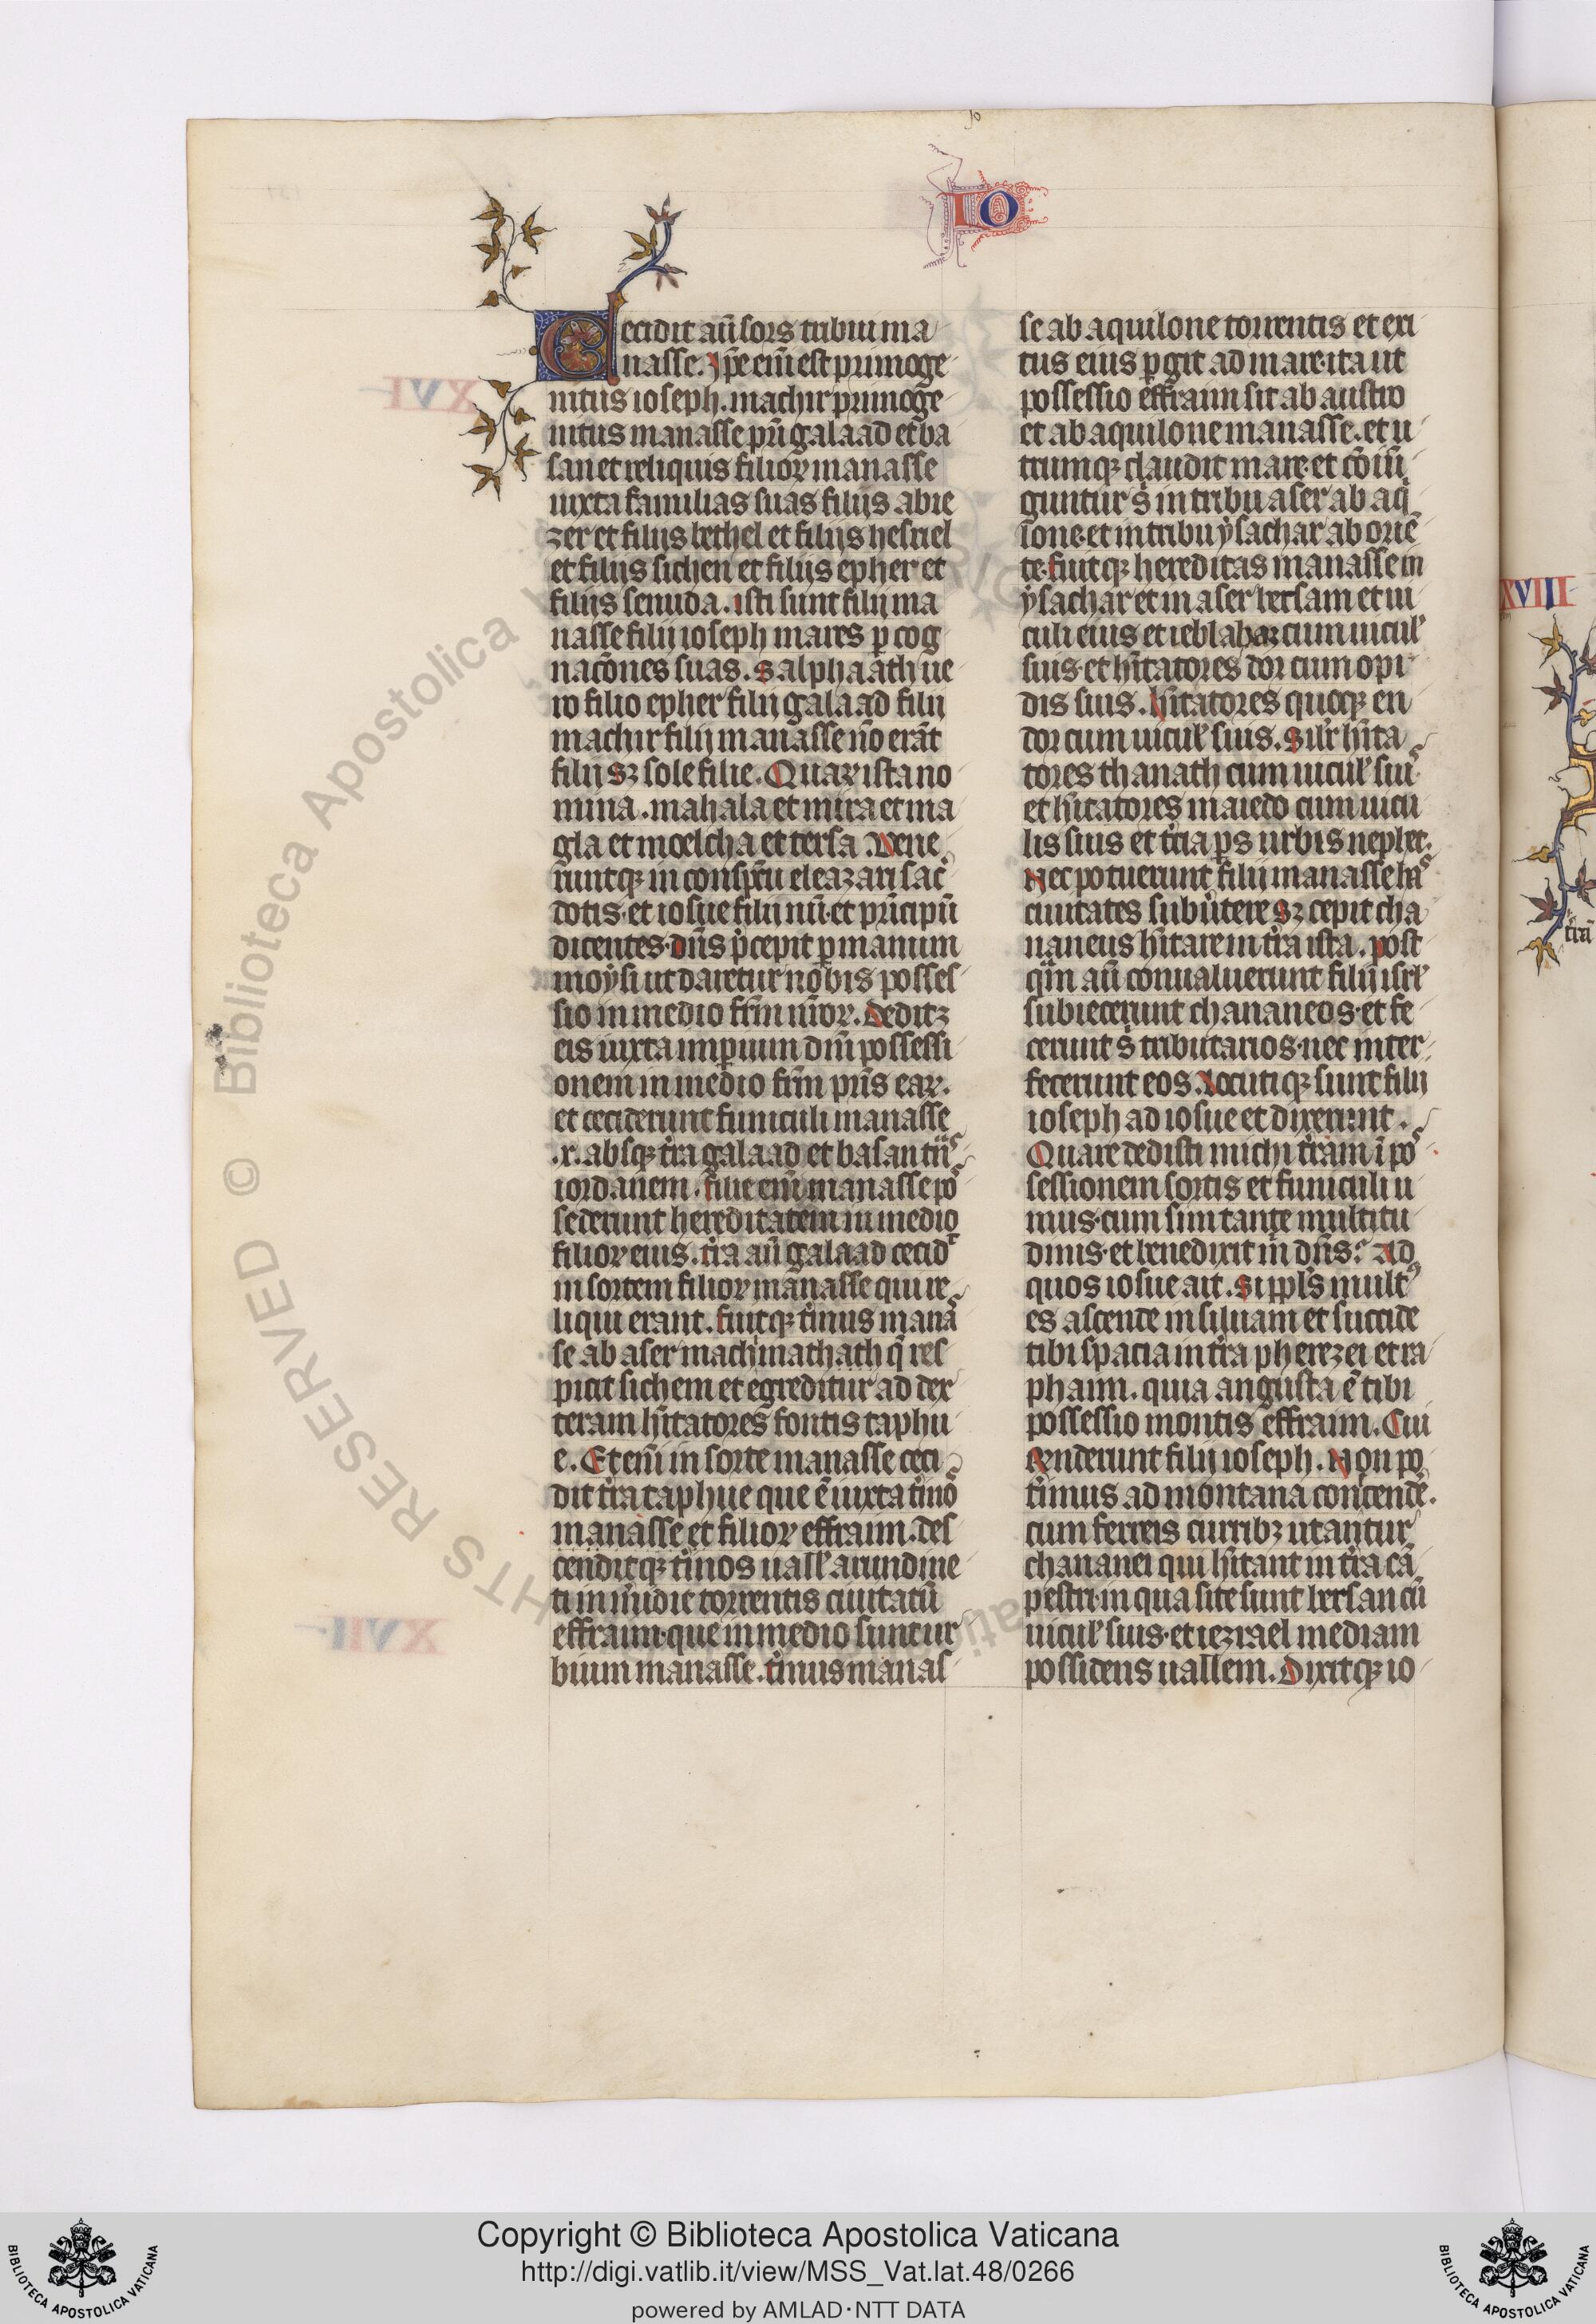 IO
Cecidit aũ sors tribui ma
nasse. Ip̃e eni̅ est primoge
nitus ioseph. machir primoge
nitus manasse pr̃i galaad et ba
san et reliquis filioꝝ manasse
iuxta familias suas filijs abie
zer et filijs bethel et filijs hesriel
et filijs sichen et filijs epher et
filijs semida. isti sunt filij ma
nasse filij ioseph mares ꝑ cog
nac̃ones suas. Salphaath ue
ro filio epher filij galaad filij
machir filij manasse nō erāt
filij sꝫ sole filie. Quaꝝ ista no
mina. mahala et mira et ma
gla et moelcha et tersa Vene
runtqꝫ in conspc̃u eleazari sac̃
dotis et iosue filij nū et prīcipū
dicentes dñs p̃cepit ꝑ manum
moysi ut daretur nobis posses
sio in medio fr̃m nr̃oꝝ. Deditqꝫ
eis iuxta imꝑium dñi possessi
onem in medio fr̃m pr̃is eaꝝ.
et ceciderunt funiculi manasse
.x. absqꝫ tr̃a galaad et basan
iordanem. filie eni̅ manasse pos
sederunt hereditatem in medio
filioꝝ eius. tr̃a aũ galaad cecid
in sortem filioꝝ manasse qui re
liqui erant. fuitqꝫ tm̃inus manas
se ab aser machmathath q̃ res
picit sichem et egreditur ad dex
teram hītatores fontis taphu
e. Et eni̅ in sorte manasse ceci
dit tr̃a taphue que ē iuxta tm̃inos
manasse et filioꝝ effraim. des
cenditqꝫ tm̃inos uallꝭ arundine
ti in m̃idie torrentis ciuitatū
effraim que in medio sunt ur
bium manasse. tm̃inus manas
se ab aquilone torrentis et exi
tus eius ꝑgit ad mare ita ut
possessio effraim sit ab austro
et ab aquilone manasse. et u
trumqꝫ claudit mare et cōiū
guntur s̃ in tribu aser ab aqͥ
lone et in tribu ysachar ab oriē
te. fuitqꝫ hereditas manasse in
ysachar et in aser bersam et ui
culi eius et ieblahaꝝ cum uiculꝭ
suis et hītatores dor cum opi
dis suis. hītatores quoqꝫ en
dor cum uiculꝭ suis. Silr̃ hīta
tores thanath cum uiculꝭ suis
et hītatores maiedo cum uicu
lis suis et tc̃ia ps̃ urbis nephet.
Nec potuerunt filij manasse has
ciuitates subũtere sꝫ cepit cha
naneus hītare in tr̃a ista. post
qͣm aũ conualuerunt filij isrl̃
subiecerunt chananeos et fe
cerunt s̃ tributarios nec inter
fecerunt eos. Locutiqꝫ sunt filij
ioseph ad iosue et dixerunt.
Quare dedisti michi tr̃am ī pos
sessionem sortis et funiculi u
nius cum sim tante multitu
dinis et benedixit m̃ dñs. Ad
quos iosue ait. Si ppl̃s multꝰ
es ascende in siluam et succide
tibi spacia in tr̃a pherezei et ra
phaim. quia angusta ē tibi
possessio montis effraim. Cui
renderunt filij ioseph. Non po
t̃imus ad montana concendē.
cum ferreis curribꝫ utantur
chananei qui hītant in tr̃a cā
pestri in qua site sunt bersan cū
uiculꝭ suis et iezrael mediam
possidens uallem. Dixitqꝫ io
XVIII
tr̃a
© Biblioteca Apostolica
RESERVED
Copyright © Biblioteca Apostolica Vaticana
http://digi.vatlib.it/view/MSS_Vat.lat.48/0266
powered by AMLAD·NTT DATA
BIBLIOTECA APOSTOLICA VATICANA
BIBLIOTECA APOSTOLICA VATICANA